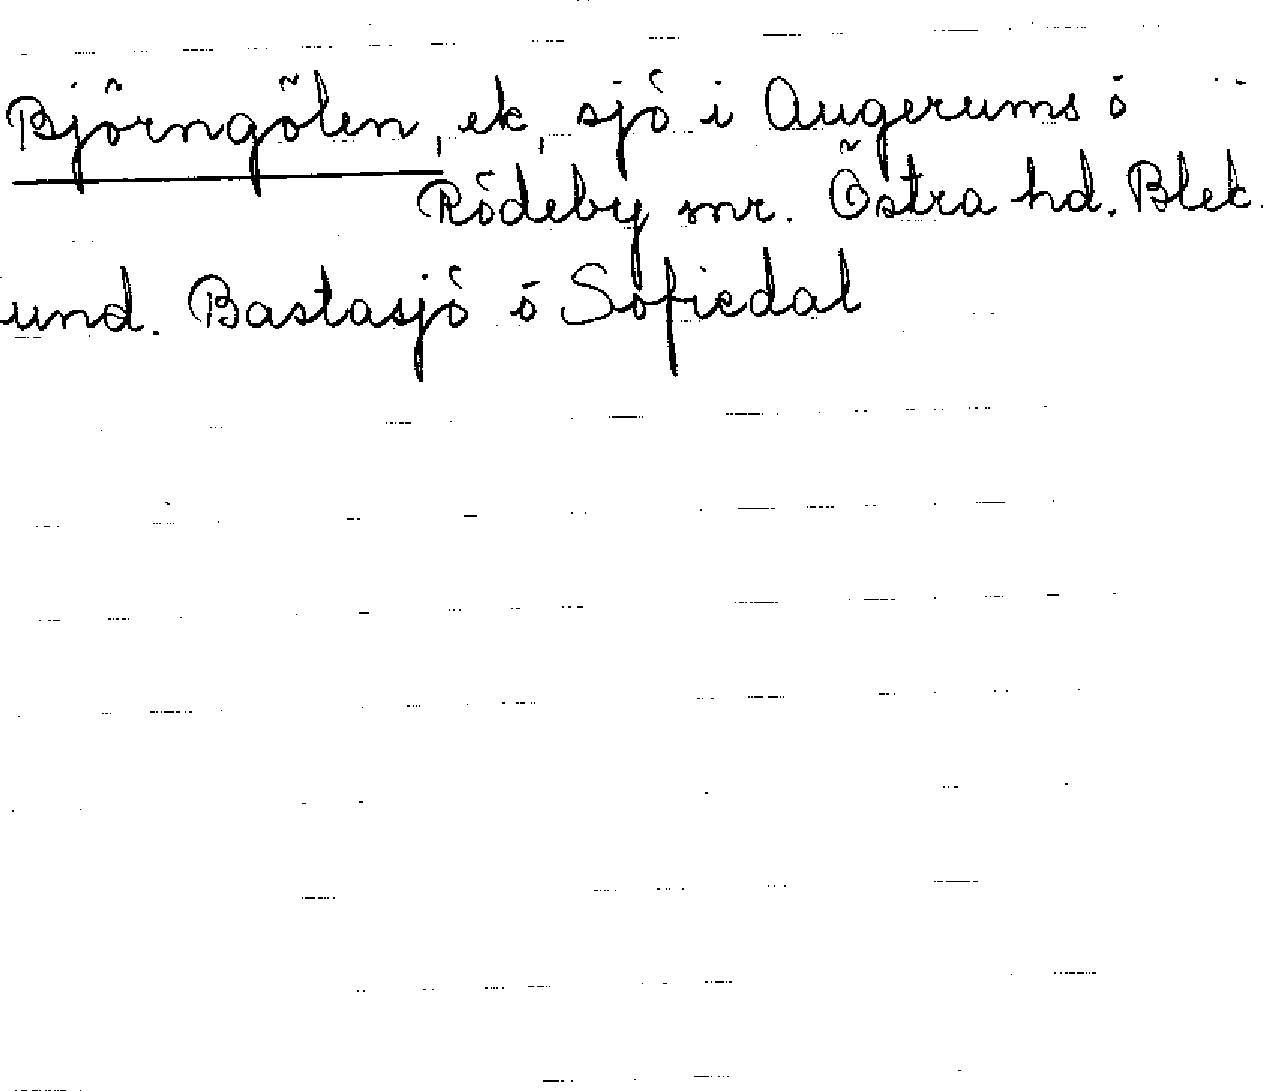 Björngölen, ek, sjö i Augerums ö
Rödeby snr. Östra hd. Blek.
und. Bastasjö ö Sofiedal